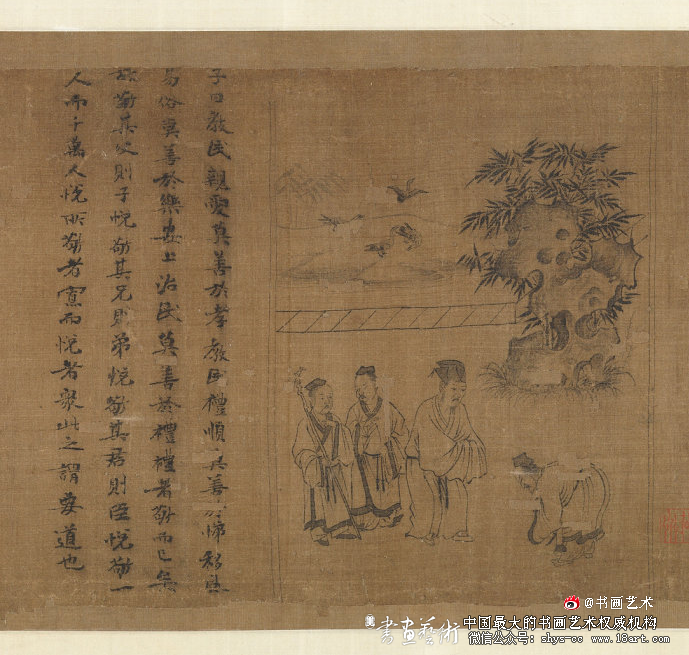 子曰教民親愛莫善於孝教民禮順莫善於悌移風
易俗莫善於樂安上治民莫善於禮禮者敬而已矣
故敬其父則子悅敬其兄則弟悅敬其君則臣悅敬一
人而千萬人悅所敬者寡而悅者衆此之謂要道也
@书画艺术
書画藝術
中国最大的书画艺术权威机构
微信公众号: shys-cc www.18art.com